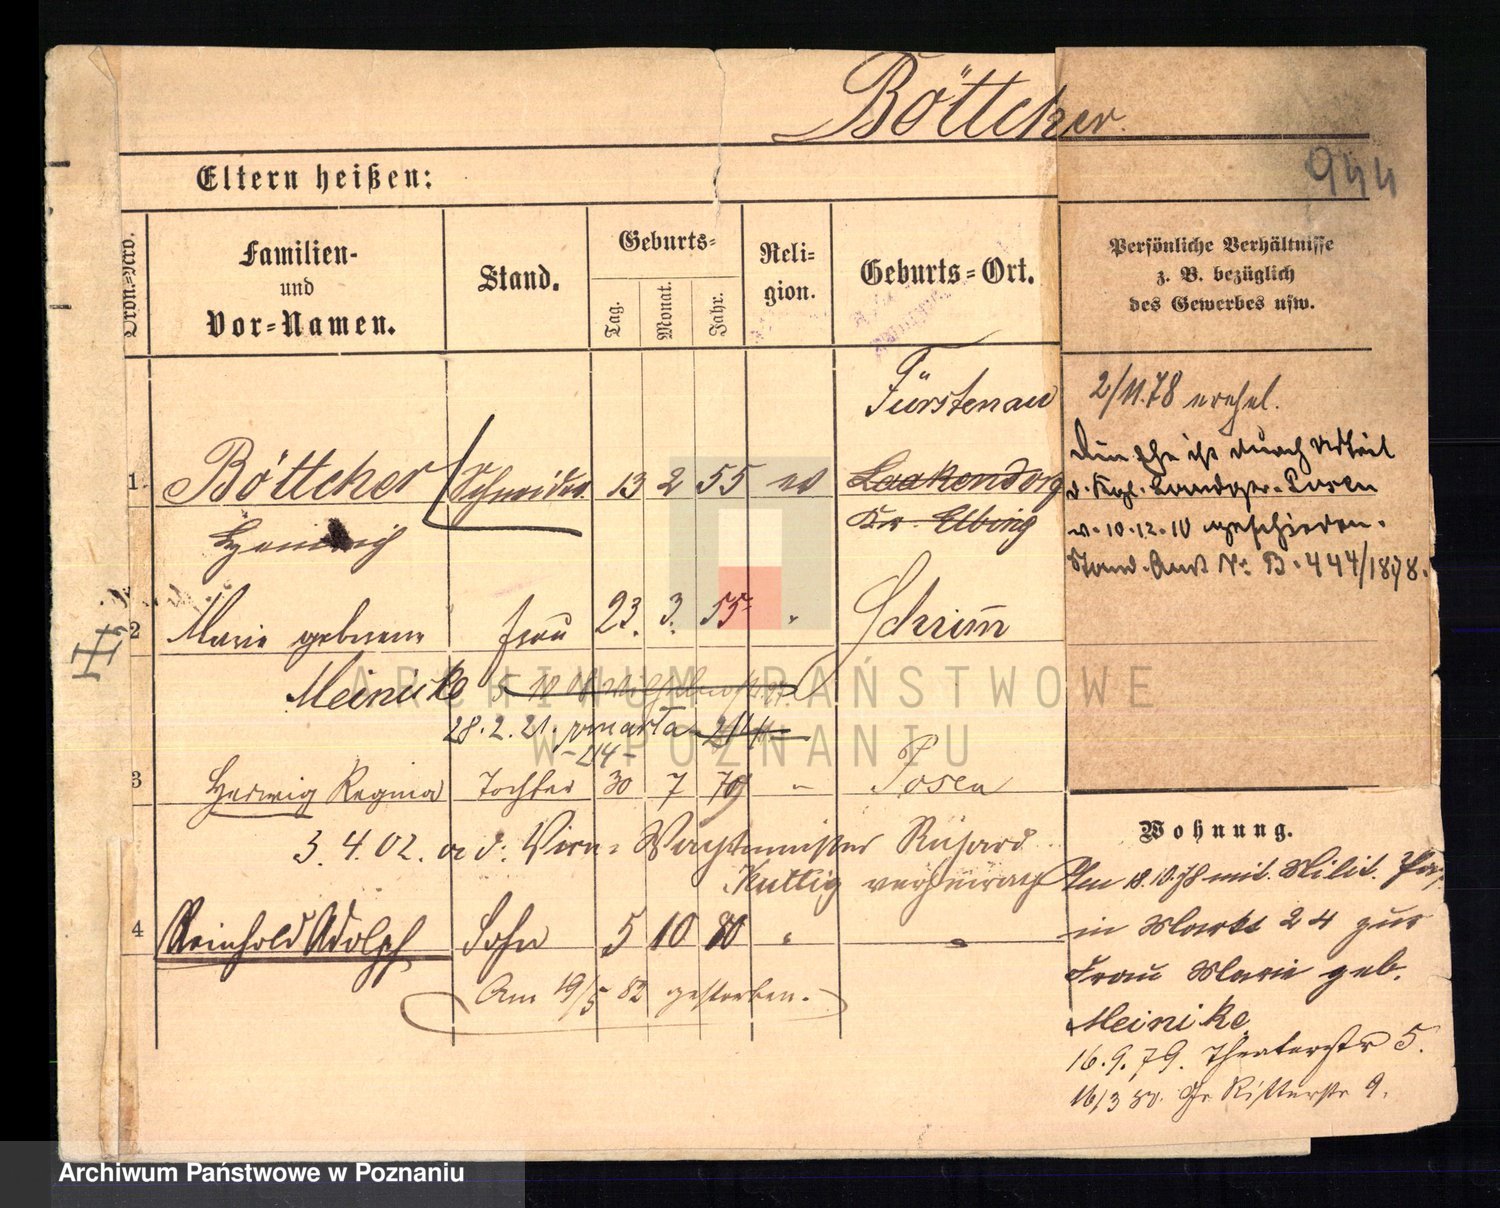 Böttcher.
944
Eltern heißen:
Ordn.=Nro.
Familien-
und
Vor=Namen.
Stand.
Geburts=
Tag.
Monat.
Jahr.
Reli=
gion.
Geburts=Ort.
Persönliche Verhältnisse
z. B. bezüglich
des Gewerbes usw.
Fürstenau
1. Böttcher Schneider 13 2 55 ev Laakendorf
Heinrich Kr. Elbing
2/11.78 verehel.
Die Ehe ist durch Urteil
d. Kgl. Landger. Posen
v. 10.12.10 geschieden.
Stand. Amt Nr. B. 444/1878.
2 Marie geborene Frau 23. 3. 55 " Schrimm
Meinicke
28.2.21. zmarła
3 Hedwig Regina Tochter 30 7 79 " Posen
3.4.02. a. d. Wachtmeister Richard
Kuttig verheirath
4 Reinhold Adolph Sohn 5 10 80 "
Am 19/5 82 gestorben.
Wohnung.
Am 18.10.78 mit Milit.
in Markt 24 zur
Frau Marie geb.
Meinike
16.9.79. Theaterstr 5.
16/3 80. Gr. Ritterstr 9.
ARCHIWUM PAŃSTWOWE
W POZNANIU
Archiwum Państwowe w Poznaniu